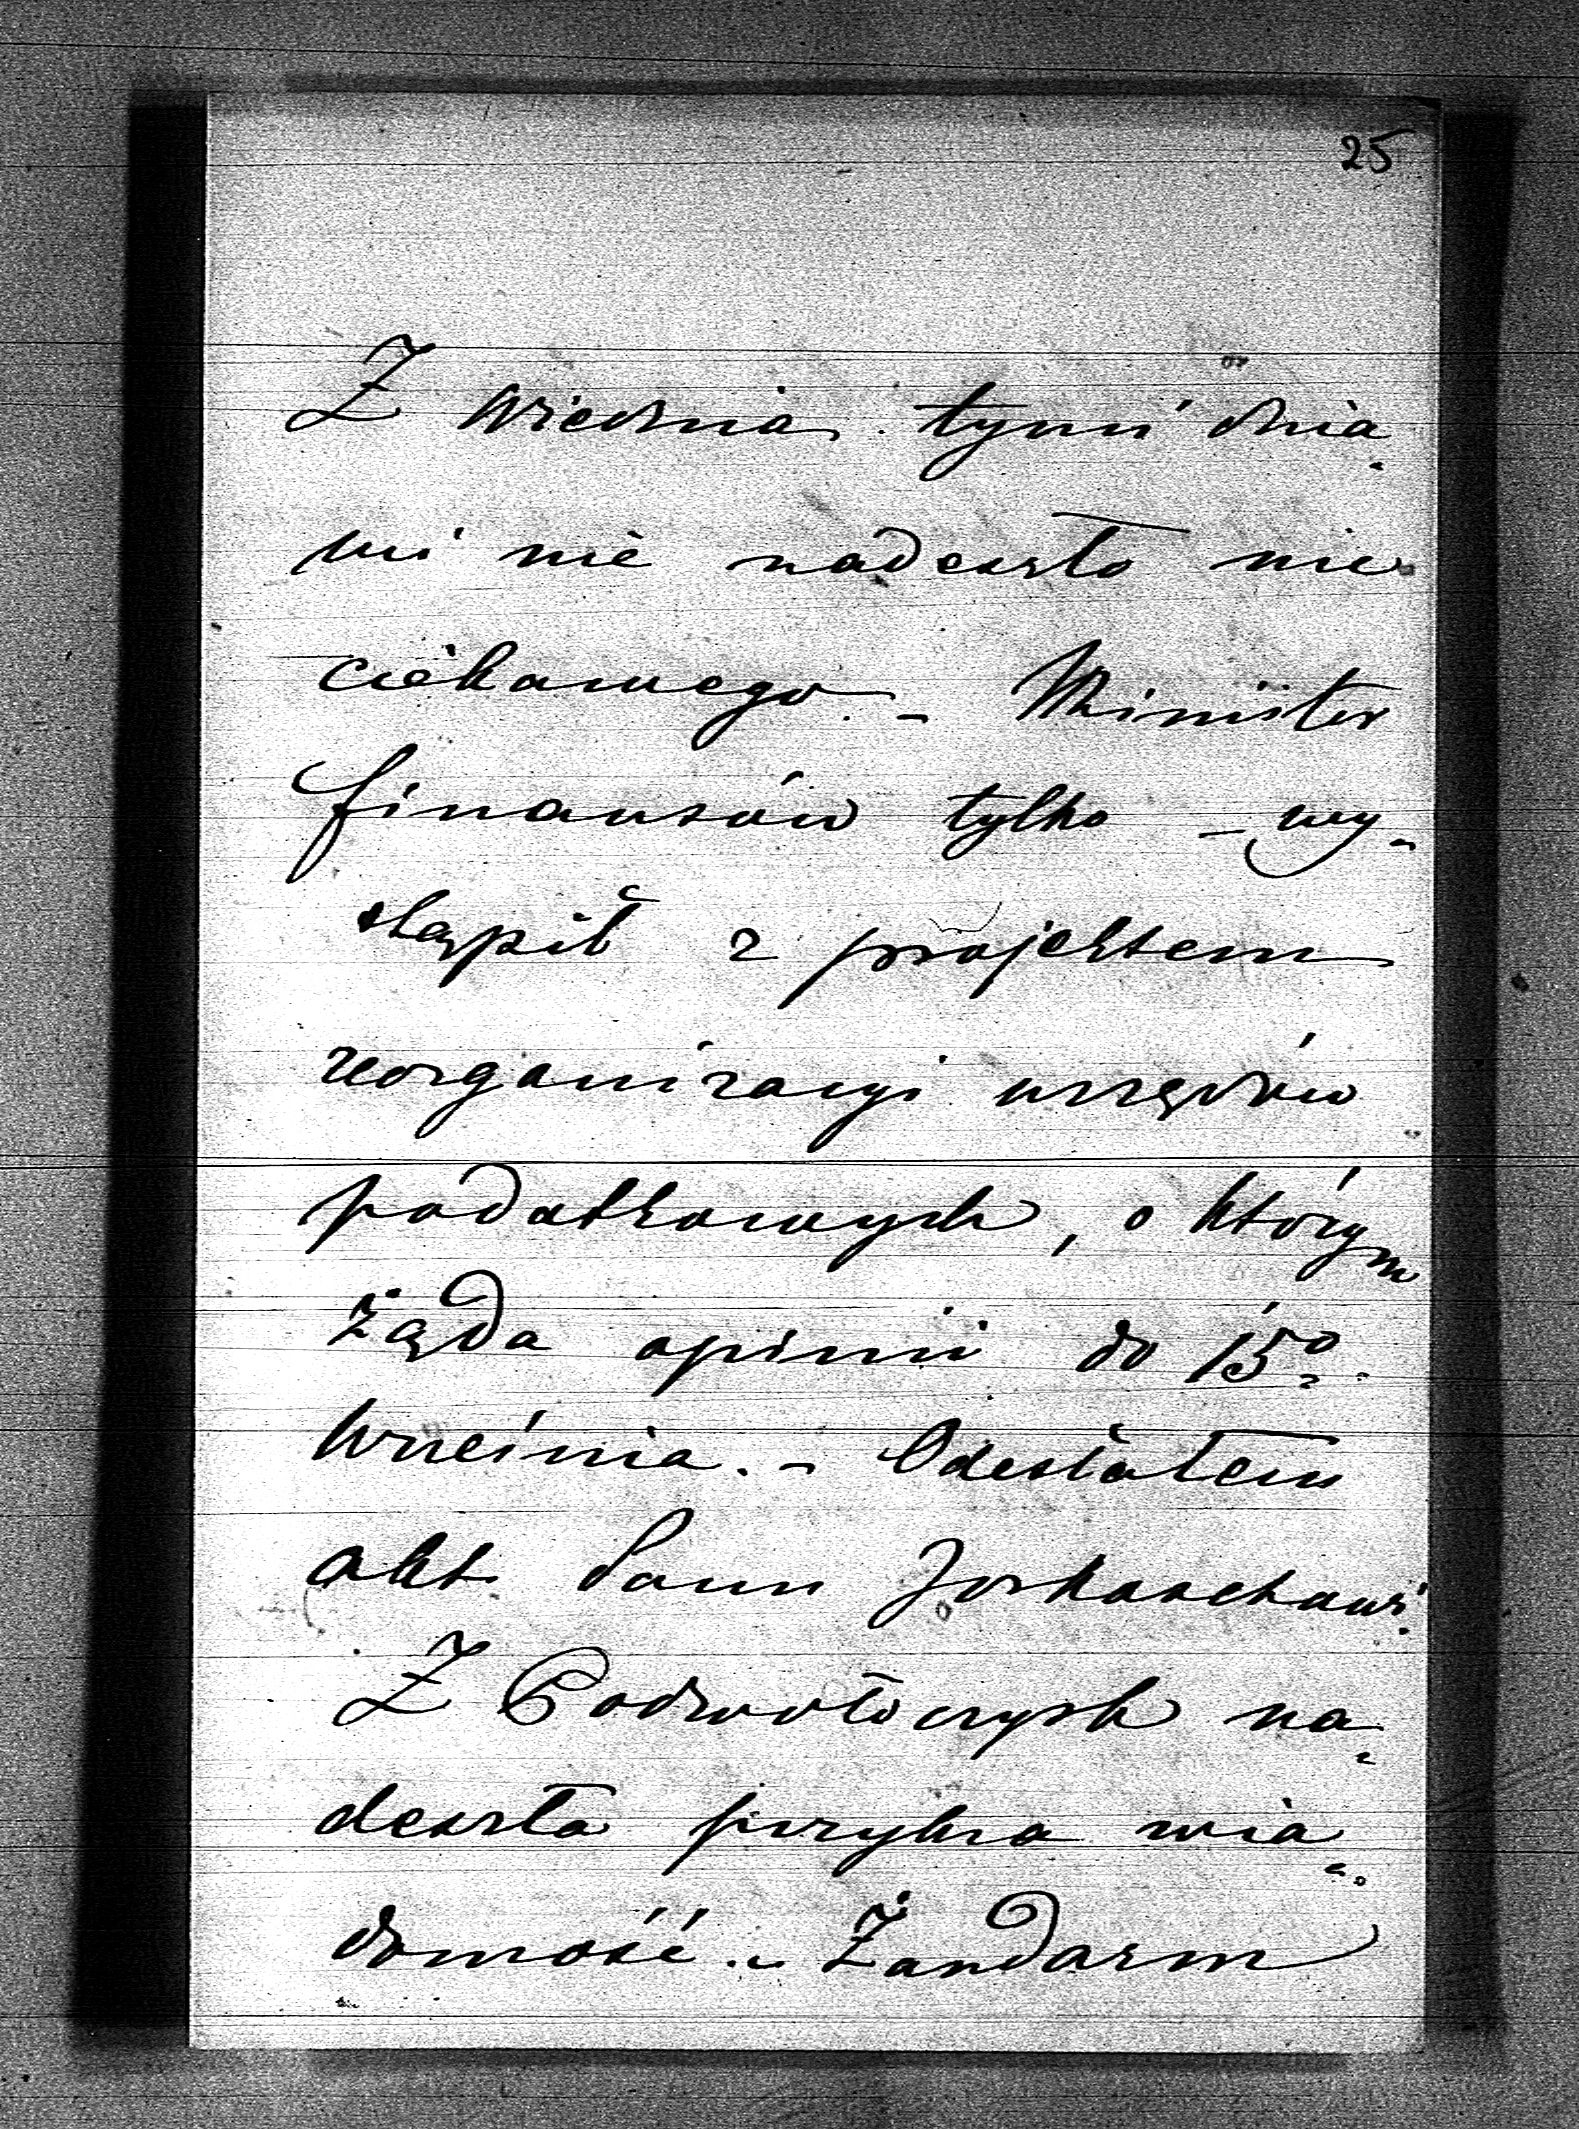 25
Z Wiednia tymi dnia-
mi nie nadeszło nic
ciekawego. - Minister
finansów tylko - wy-
stąpił z projektem
reorganizacyi urzędów
podatkowych, o którym
żąda opinii do 15º
Września. - Odesłałem
akt Panu Jorkaschowi.
Z Podwołoczysk na-
deszła przykra wia-
domość. - Żandarm